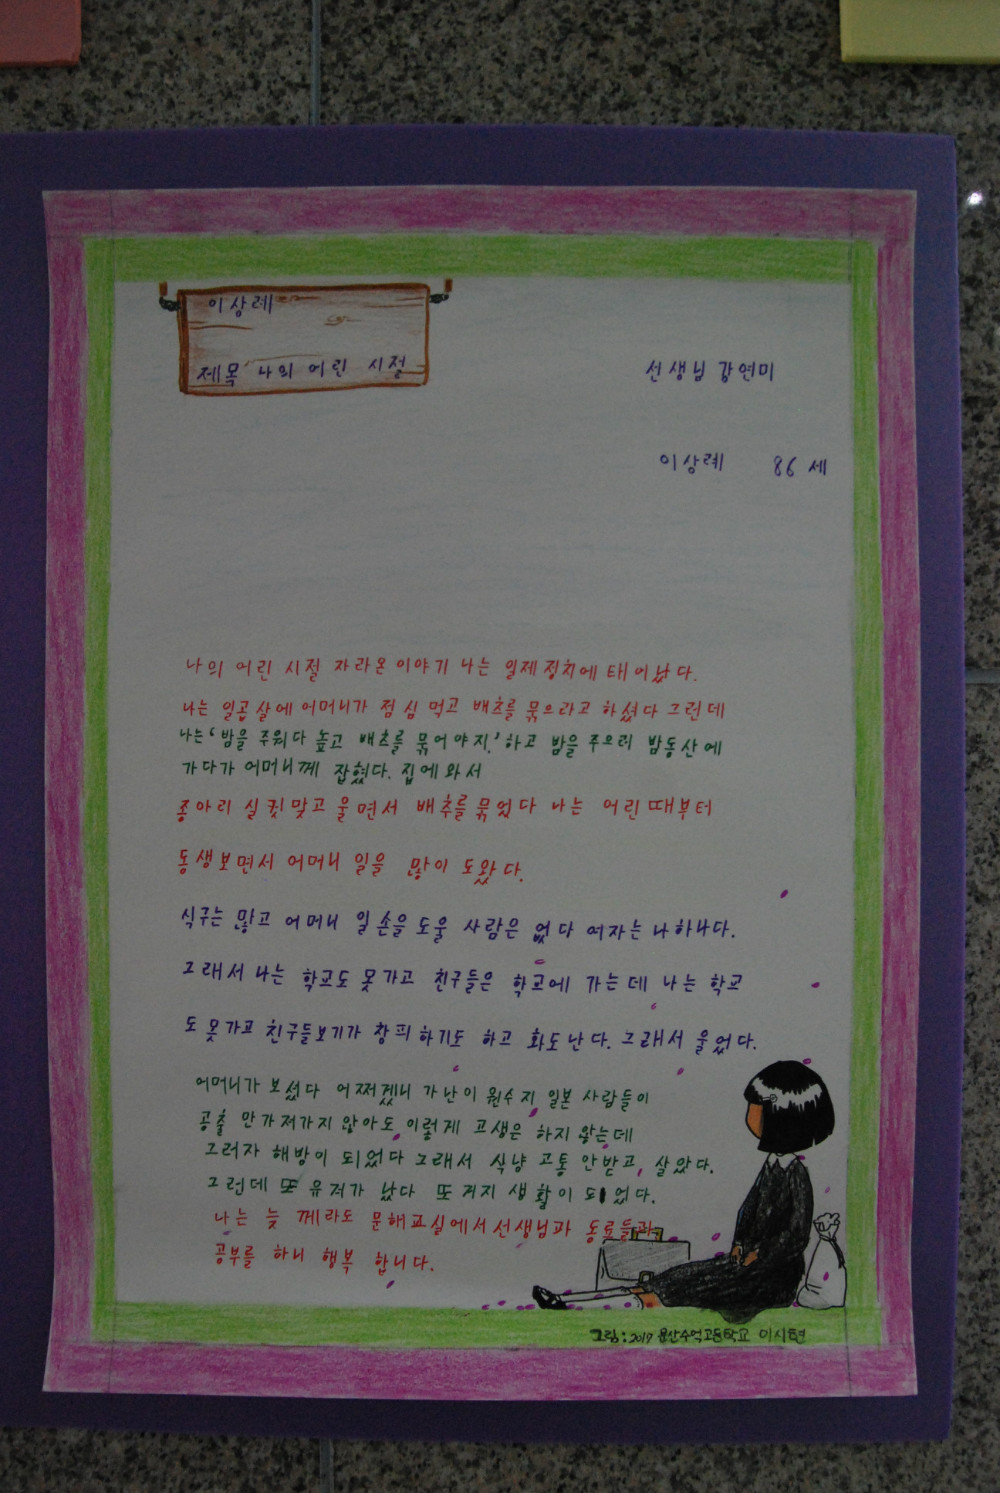 이상례
제목 나의 어린 시절
선생님 강연미
이상례 86 세
나의 어린 시절 자라온 이야기 나는 일제정치에 태어났다.
나는 일곱살에 어머니가 점심 먹고 배츠를 묶으라고 하셨다 그런데
나는 '밤을 주워다 놓고 배츠를 묶어야지.' 하고 밤을 주으러 밤동산에
가다가 어머니께 잡혔다. 집에 와서
종아리 실컷 맞고 울면서 배추를 묶었다 나는 어린때부터
동생보면서 어머니 일을 많이 도왔다.
식구는 많고 어머니 일손을 도울 사람은 없다 여자는 나하나다.
그래서 나는 학교도 못가고 친구들은 학교에 가는데 나는 학교
도 못가고 친구들보기가 창피하기도 하고 화도난다. 그래서 울었다.
어머니가 보셨다 어쩌겠니 가난이 원수지 일본 사람들이
공출 안가저가지 않아도 이렇게 고생은 하지 않는데
그러자 해방이 되었다 그래서 식냥 고통 안받고, 살았다.
그런데 또 유거가 났다 또 거지 생활이 되었다.
나는 늦게라도 문해교실에서 선생님과 동료들과
공부를 하니 행복 합니다.
그림:2019 이시현